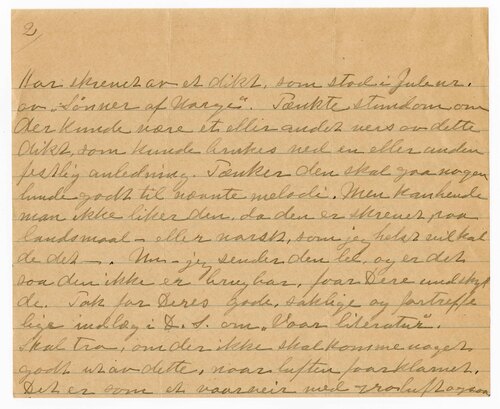 2/
Har skrevet av et dikt, som stod i Julenr.
av „Sønner af Norge". Tænkte stundom om
der kunde være et eller andet vers av dette
dikt, som kunde brukes ved en eller anden
festlig anledning. Tænker den skal gaa nogen
lunde godt til nævnte melodi. Men kanhende
man ikke liker den, da den er skrevet paa
landsmaal – eller norsk, som jeg helst vil kal
de det –. Nu – jeg sender den lel, og er det
saa den ikke er brugbar, faar Dere undskyl
de. Tak for Deres gode, saklige og fortreffe
lige indlæg i D. S. om „Vaar literatur".
Skal tro, om der ikke skal komme noget
godt ut av dette, naar luften faar klarnet.
Det er som et vaarveir med